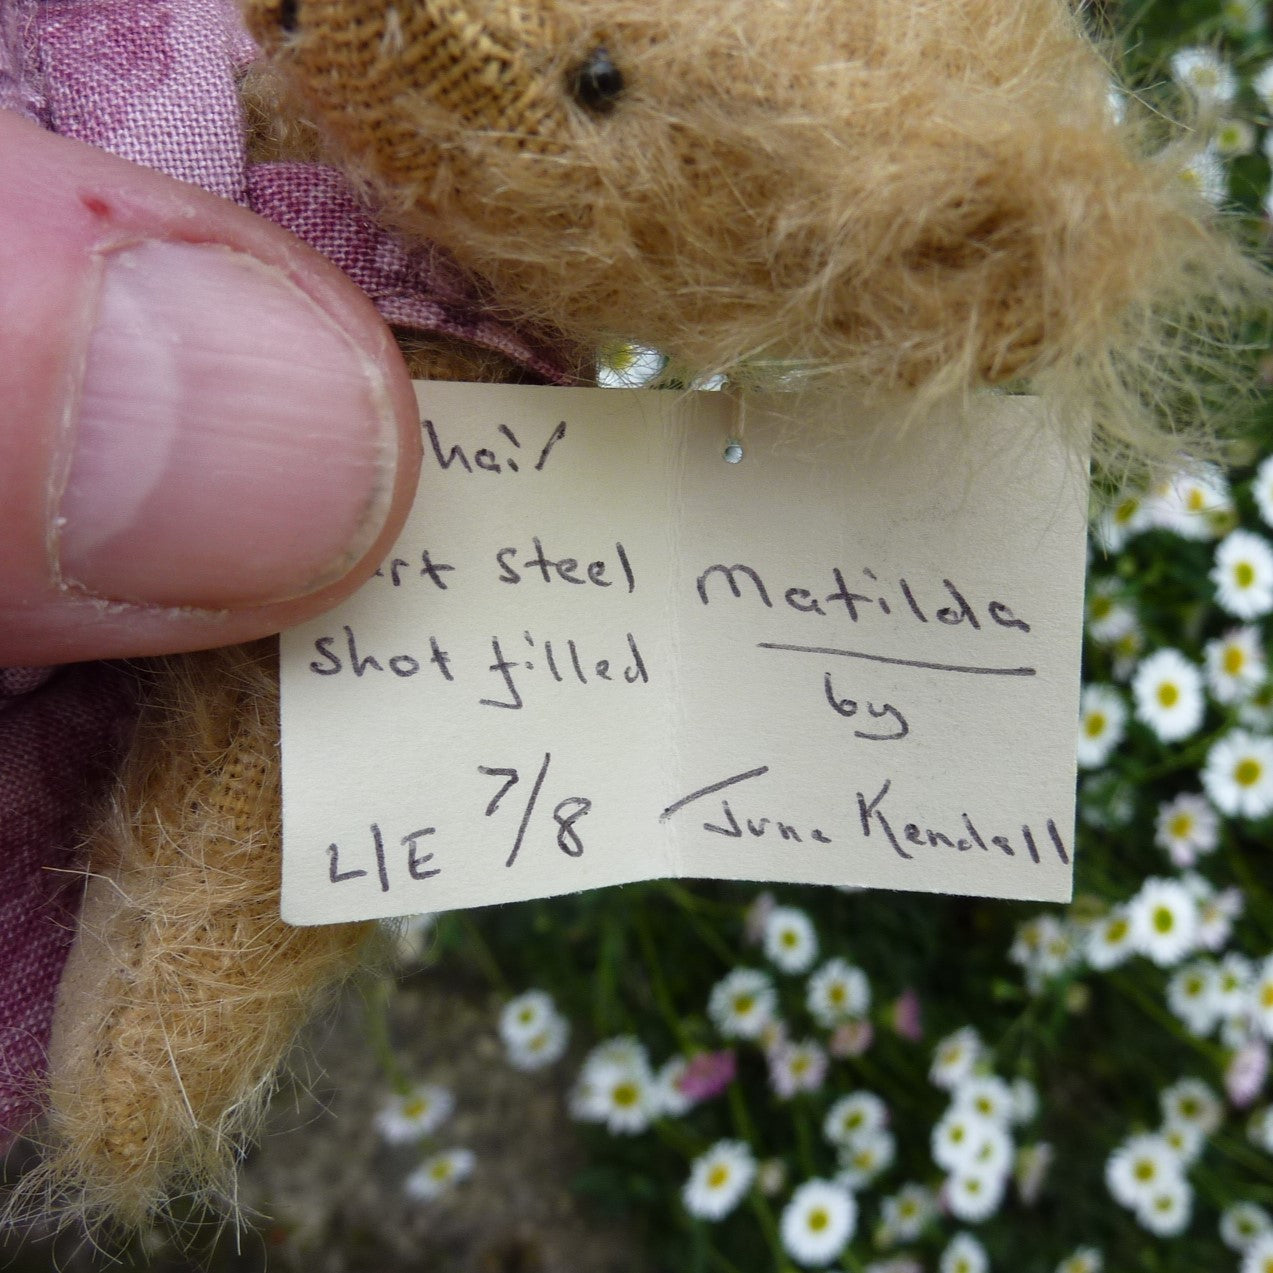 hair
steel
shot filled
L/E 7/8
Matilda
by
June Kendall